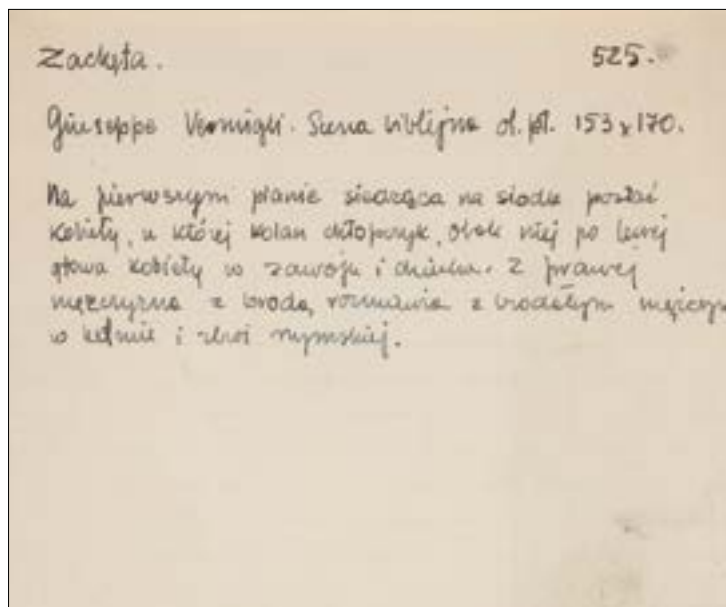 Zachęta. 525.
Giuseppe Vermigli. Scena biblijna ol. pł. 153 x 170.
Na pierwszym planie siedząca na siodle postać
kobiety, u której kolan chłopczyk, obok niej po lewej
głowa kobiety w zawoju i dziecka. Z prawej
mężczyzna z brodą rozmawia z brodatym mężczyz
w hełmie i zbroi rzymskiej.